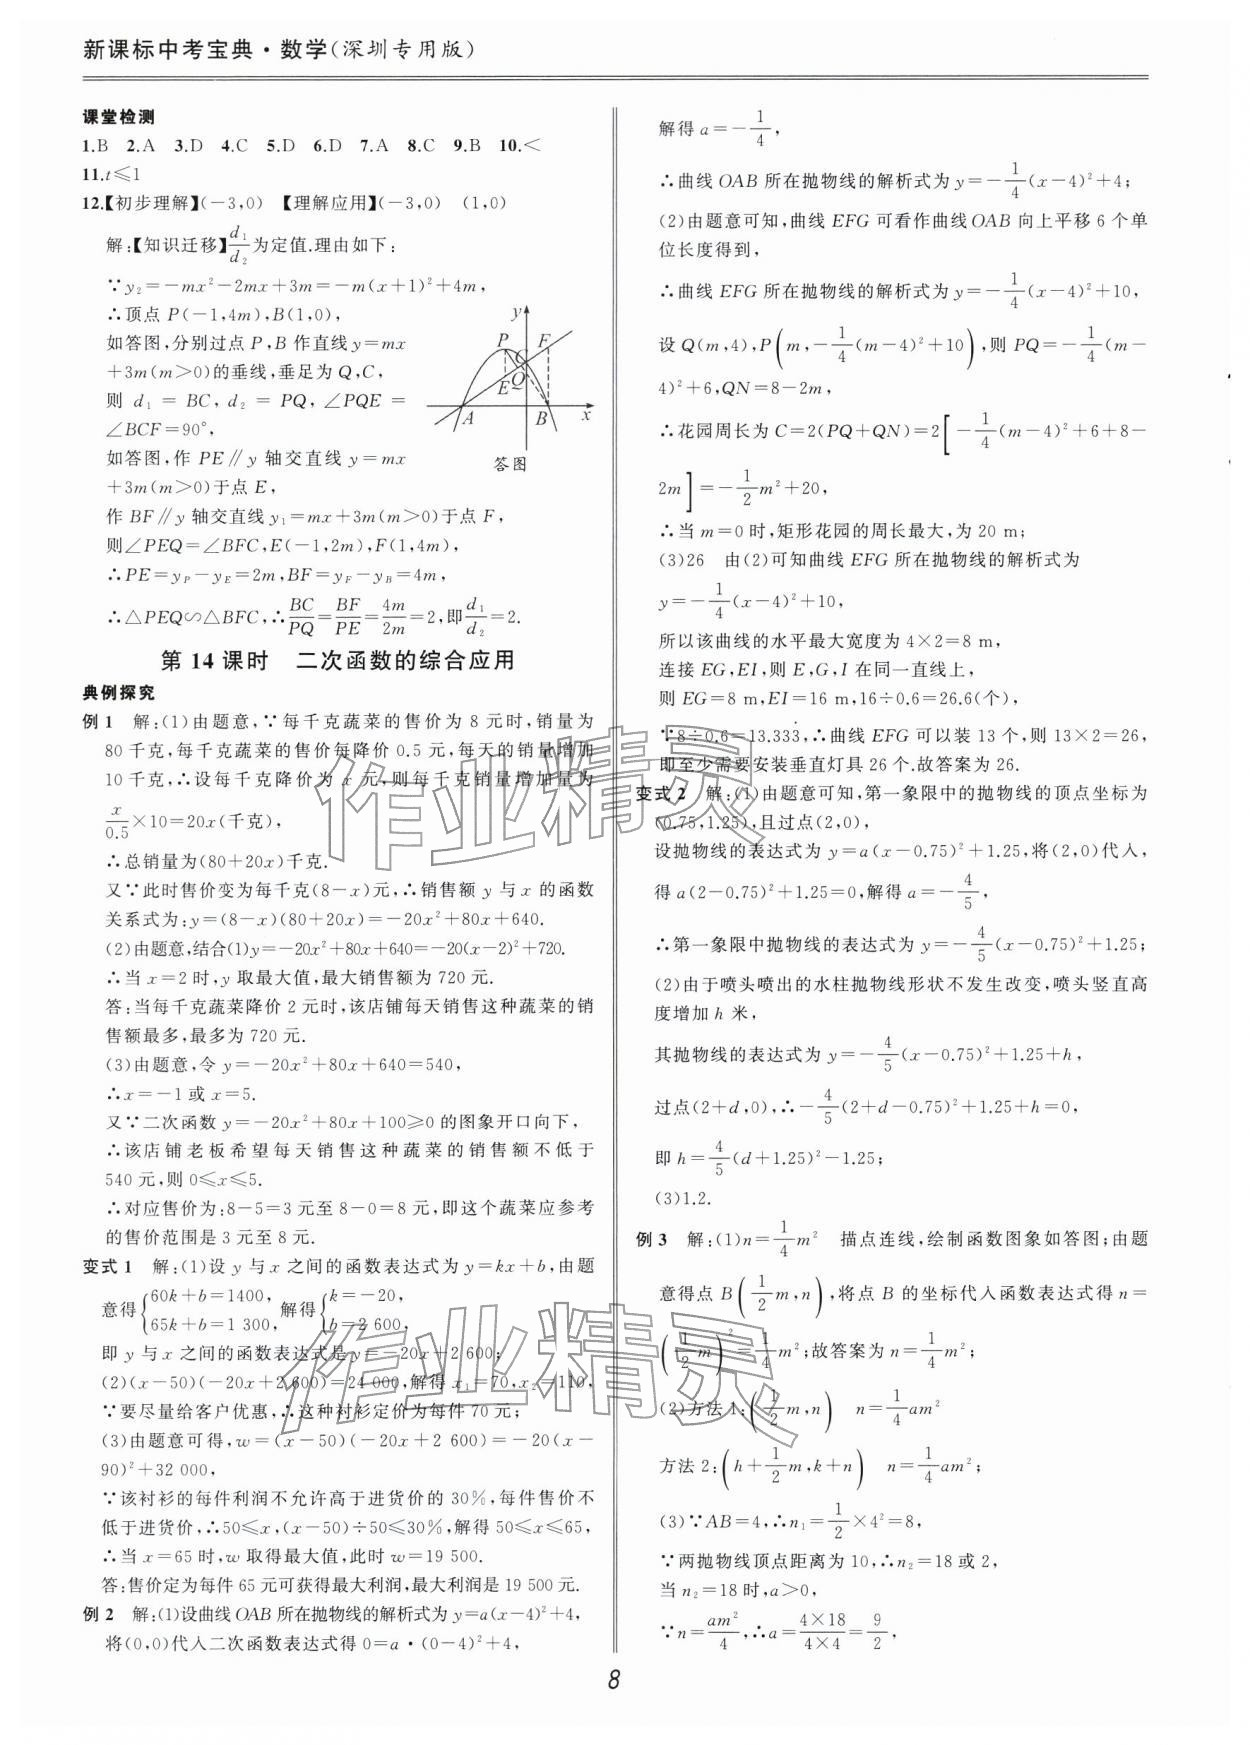 新课标中考宝典·数学(深圳专用版)
课堂检测
1.B 2.A 3.D 4.C 5.D 6.D 7.A 8.C 9.B 10.<
11.t≤1
12.【初步理解】(-3,0) 【理解应用】(-3,0) (1,0)
解:【知识迁移】d₁/d₂为定值.理由如下:
∵y₂=-mx²-2mx+3m=-m(x+1)²+4m,
∴顶点P(-1,4m),B(1,0),
如答图,分别过点P,B作直线y=mx
+3m(m>0)的垂线,垂足为Q,C,
则 d₁ = BC, d₂ = PQ, ∠PQE =
∠BCF=90°,
如答图,作PE∥y轴交直线y=mx
+3m(m>0)于点E,
作BF∥y轴交直线y₁=mx+3m(m>0)于点F,
则∠PEQ=∠BFC,E(-1,2m),F(1,4m),
∴PE=y_P-y_E=2m,BF=y_F-y_B=4m,
∴△PEQ∽△BFC,∴BC/PQ=BF/PE=4m/2m=2,即d₁/d₂=2.
y
P
F
C
Q
E
A
B
x
答图
第14课时 二次函数的综合应用
典例探究
例1 解:(1)由题意,∵每千克蔬菜的售价为8元时,销量为
80千克,每千克蔬菜的售价每降价0.5元,每天的销量增加
10千克,∴设每千克降价为x元,则每千克销量增加量为
x/0.5×10=20x(千克),
∴总销量为(80+20x)千克.
又∵此时售价变为每千克(8-x)元,∴销售额y与x的函数
关系式为:y=(8-x)(80+20x)=-20x²+80x+640.
(2)由题意,结合(1)y=-20x²+80x+640=-20(x-2)²+720.
∴当x=2时,y取最大值,最大销售额为720元.
答:当每千克蔬菜降价2元时,该店铺每天销售这种蔬菜的销
售额最多,最多为720元.
(3)由题意,令y=-20x²+80x+640=540,
∴x=-1或x=5.
又∵二次函数y=-20x²+80x+100≥0的图象开口向下,
∴该店铺老板希望每天销售这种蔬菜的销售额不低于
540元,则0≤x≤5.
∴对应售价为:8-5=3元至8-0=8元,即这个蔬菜应参考
的售价范围是3元至8元.
变式1 解:(1)设y与x之间的函数表达式为y=kx+b,由题
意得{60k+b=1400, 65k+b=1 300, 解得{k=-20, b=2 600,
即y与x之间的函数表达式是y=-20x+2 600;
(2)(x-50)(-20x+2 600)=24 000,解得x₁=70,x₂=110,
∵要尽量给客户优惠,∴这种衬衫定价为每件70元;
(3)由题意可得,w=(x-50)(-20x+2 600)=-20(x-
90)²+32 000,
∵该衬衫的每件利润不允许高于进货价的30%,每件售价不
低于进货价,∴50≤x,(x-50)÷50≤30%,解得50≤x≤65,
∴当x=65时,w取得最大值,此时w=19 500.
答:售价定为每件65元可获得最大利润,最大利润是19 500元.
例2 解:(1)设曲线OAB所在抛物线的解析式为y=a(x-4)²+4,
将(0,0)代入二次函数表达式得0=a·(0-4)²+4,
解得a=-1/4,
∴曲线OAB所在抛物线的解析式为y=-1/4(x-4)²+4;
(2)由题意可知,曲线EFG可看作曲线OAB向上平移6个单
位长度得到,
∴曲线EFG所在抛物线的解析式为y=-1/4(x-4)²+10,
设Q(m,4),P(m,-1/4(m-4)²+10),则PQ=-1/4(m-
4)²+6,QN=8-2m,
∴花园周长为C=2(PQ+QN)=2[-1/4(m-4)²+6+8-
2m]=-1/2m²+20,
∴当m=0时,矩形花园的周长最大,为20 m;
(3)26 由(2)可知曲线EFG所在抛物线的解析式为
y=-1/4(x-4)²+10,
所以该曲线的水平最大宽度为4×2=8 m,
连接EG,EI,则E,G,I在同一直线上,
则EG=8 m,EI=16 m,16÷0.6=26.6(个),
∵8÷0.6=13.333,∴曲线EFG可以装13个,则13×2=26,
即至少需要安装垂直灯具26个.故答案为26.
变式2 解:(1)由题意可知,第一象限中的抛物线的顶点坐标为
(0.75,1.25),且过点(2,0),
设抛物线的表达式为y=a(x-0.75)²+1.25,将(2,0)代入,
得a(2-0.75)²+1.25=0,解得a=-4/5,
∴第一象限中抛物线的表达式为y=-4/5(x-0.75)²+1.25;
(2)由于喷头喷出的水柱抛物线形状不发生改变,喷头竖直高
度增加h米,
其抛物线的表达式为y=-4/5(x-0.75)²+1.25+h,
过点(2+d,0),∴-4/5(2+d-0.75)²+1.25+h=0,
即h=4/5(d+1.25)²-1.25;
(3)1.2.
例3 解:(1)n=1/4m² 描点连线,绘制函数图象如答图;由题
意得点B(1/2m,n),将点B的坐标代入函数表达式得n=
(1/2m)²=1/4m²;故答案为n=1/4m²;
(2)方法1:(1/2m,n) n=1/4am²
方法2:(h+1/2m,k+n) n=1/4am²;
(3)∵AB=4,∴n₁=1/2×4²=8,
∵两抛物线顶点距离为10,∴n₂=18或2,
当n₂=18时,a>0,
∵n=am²/4,∴a=4×18/4×4=9/2,
8
作业精灵
作业精灵